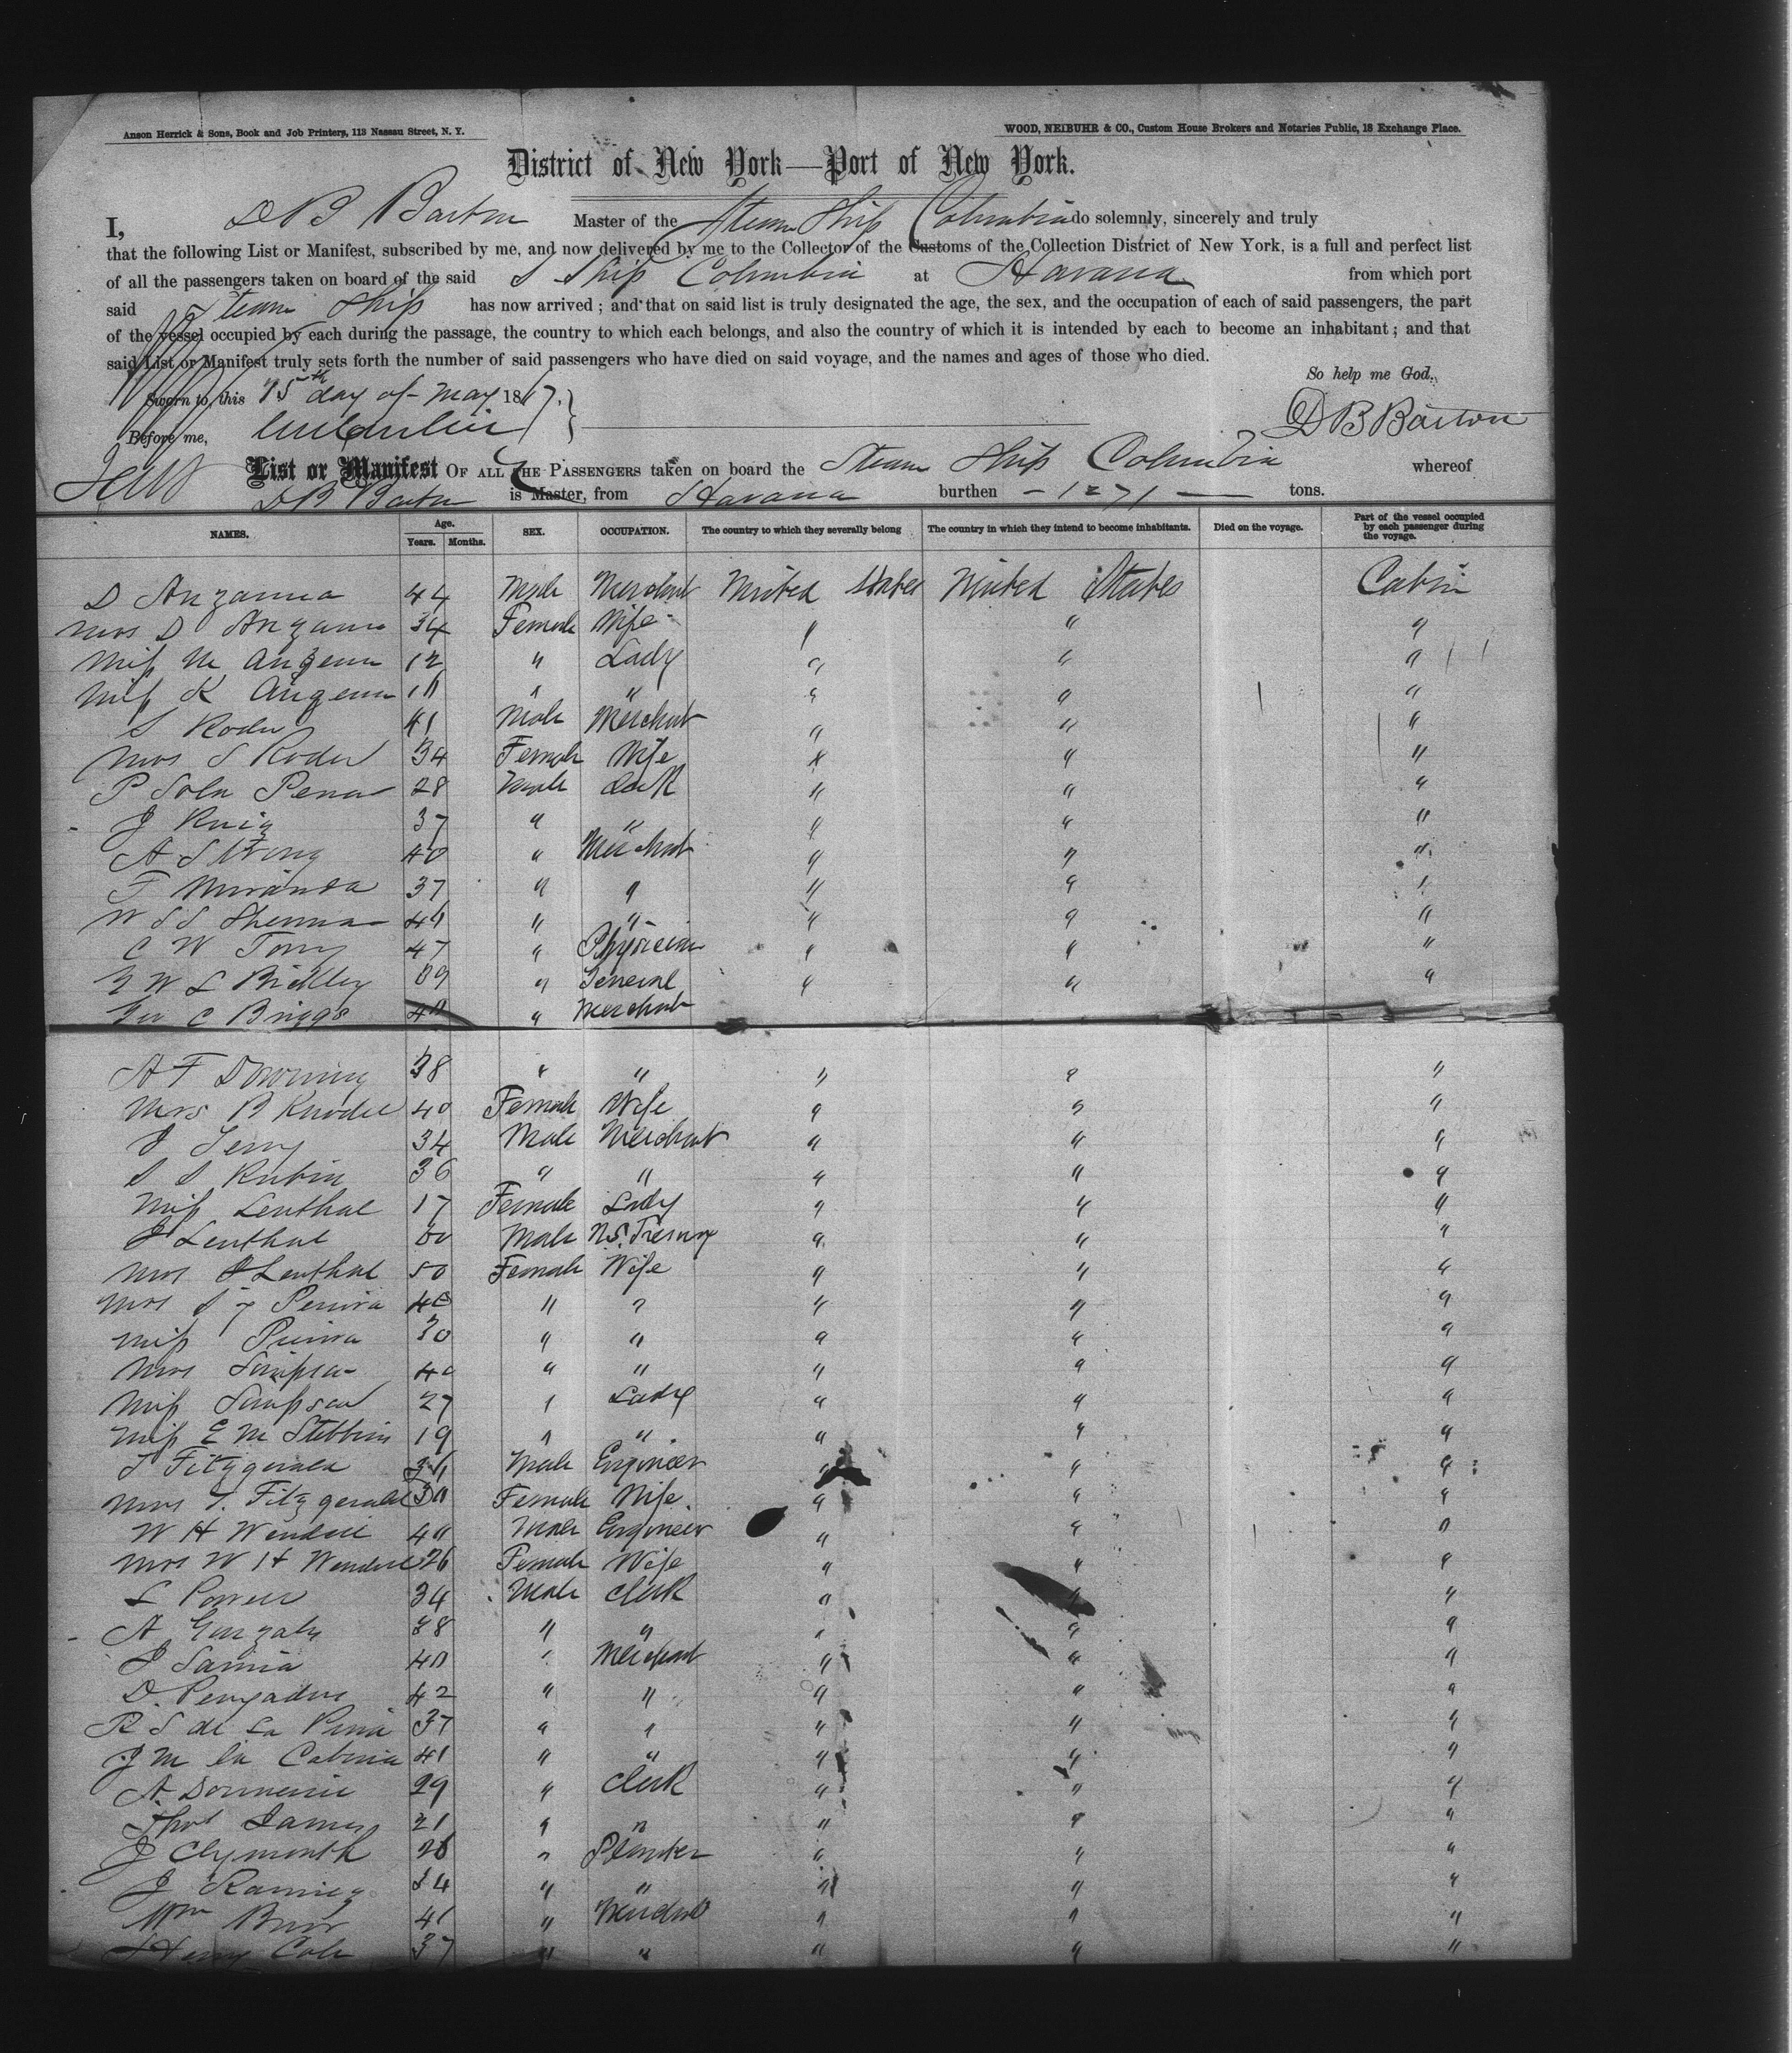 Anson Herrick & Sons, Book and Job Printers, 113 Nassau Street, N. Y.
WOOD, NEIBUHR & CO., Custom House Brokers and Notaries Public, 18 Exchange Place.
District of New York—Port of New York.
I, D B Barton Master of the Steam Ship Columbia do solemnly, sincerely and truly
that the following List or Manifest, subscribed by me, and now delivered by me to the Collector of the Customs of the Collection District of New York, is a full and perfect list
of all the passengers taken on board of the said S Ship Columbia at Havana from which port
said Steam Ship has now arrived; and that on said list is truly designated the age, the sex, and the occupation of each of said passengers, the part
of the vessel occupied by each during the passage, the country to which each belongs, and also the country of which it is intended by each to become an inhabitant; and that
said List or Manifest truly sets forth the number of said passengers who have died on said voyage, and the names and ages of those who died.
So help me God.
Sworn to, this 15th day of May 1867.
D B Barton
Before me,
List or Manifest OF ALL THE PASSENGERS taken on board the Steam Ship Columbia whereof
D B Barton is Master, from Havana burthen - 1271 - tons.
NAMES. Age. Years. Months. SEX. OCCUPATION. The country to which they severally belong The country in which they intend to become inhabitants. Died on the voyage. Part of the vessel occupied by each passenger during the voyage.
D 44 Male Merchant United States United States Cabin
Mrs D 34 Female Wife " " "
Miss M 12 " Lady " " "
Miss K " " " " "
S 41 Male Merchant " " "
Mrs S 34 Female Wife " " "
P Sola Pena 28 Male Clerk " " "
J Ruiz 37 " " " " "
A Strong 40 " Merchant " " "
F Miranda 37 " " " " "
W S S Sherman " " " " "
C W 47 " Physician " " "
" General " " "
Geo C Briggs 40 " Merchant
A F Downing 38 " " " " "
Mrs B 40 Female Wife " " "
J Terry 34 Male Merchant " " "
S S Rubin 36 " " " " "
Miss Lenthal 17 Female Lady " " "
J Lenthal 60 Male " " "
Mrs J Lenthal 50 Female Wife " " "
Mrs S 40 " " " " "
Miss 30 " " " " "
Mrs Simpson 40 " " " " "
Miss Simpson 27 " Lady " " "
Miss E M Stebbins 19 " " " " "
T Fitzgerald Male Engineer " " "
Mrs T. Fitzgerald 30 Female Wife. " " "
W H Wendell 40 Male Engineer " " "
Mrs W H Wendell 26 Female Wife " " "
L Power 34 Male Clerk " " "
A Gonzalez 38 " " " " "
J 40 " Merchant " " "
D. 42 " " " " "
R S de La Pena 37 " " " " "
J M la 41 " " " " "
A 29 " Clerk " " "
Thos James 21 " " " " "
J Clymonth 26 " Planter " " "
J Ramirez 34 " " " " "
Wm 41 " Merchant " " "
Henry Cole 37 " " " " "